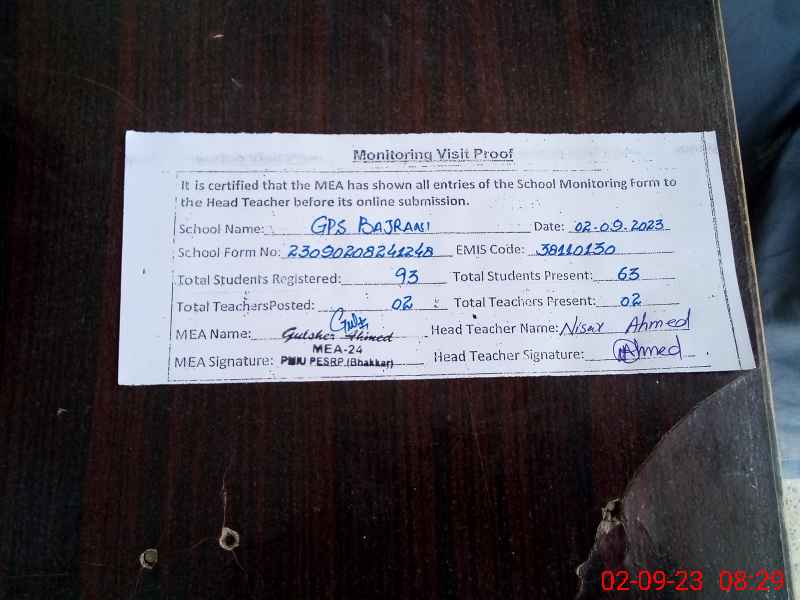 Monitoring Visit Proof
It is certified that the MEA has shown all entries of the School Monitoring Form to
the Head Teacher before its online submission.
School Name: GPS BAJRANI Date: 02-09-2023
School Form No: 23090208241248 EMIS Code: 38110130
Total Students Registered: 93 Total Students Present: 63
Total TeachersPosted: 02 Total Teachers Present: 02
MEA Name: Gulsher Ahmed Head Teacher Name: Nisar Ahmed
MEA-24
MEA Signature: PMIU PESRP.(Bhakkar) Head Teacher Signature: Ahmed
02-09-23 08:29